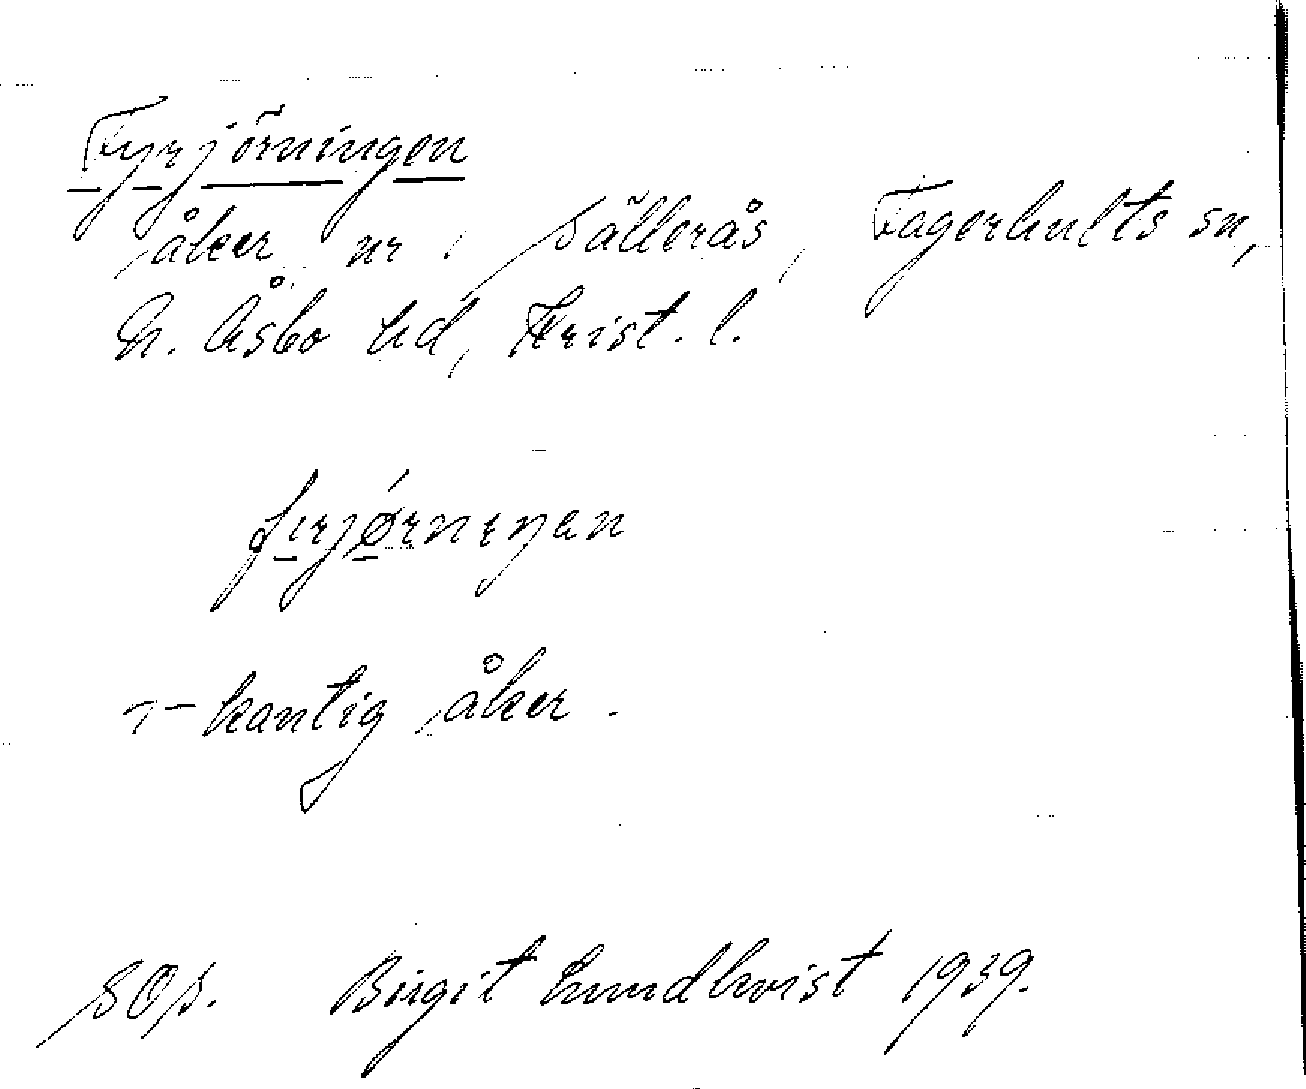 Fyrjörningen
åker nr 1 Sällerås, Fagerhults sn,
N. Åsbo hd, Krist. l.
firjørnıŋan
4-kantig åker.
SOS. Birgit Lundkvist 1939.